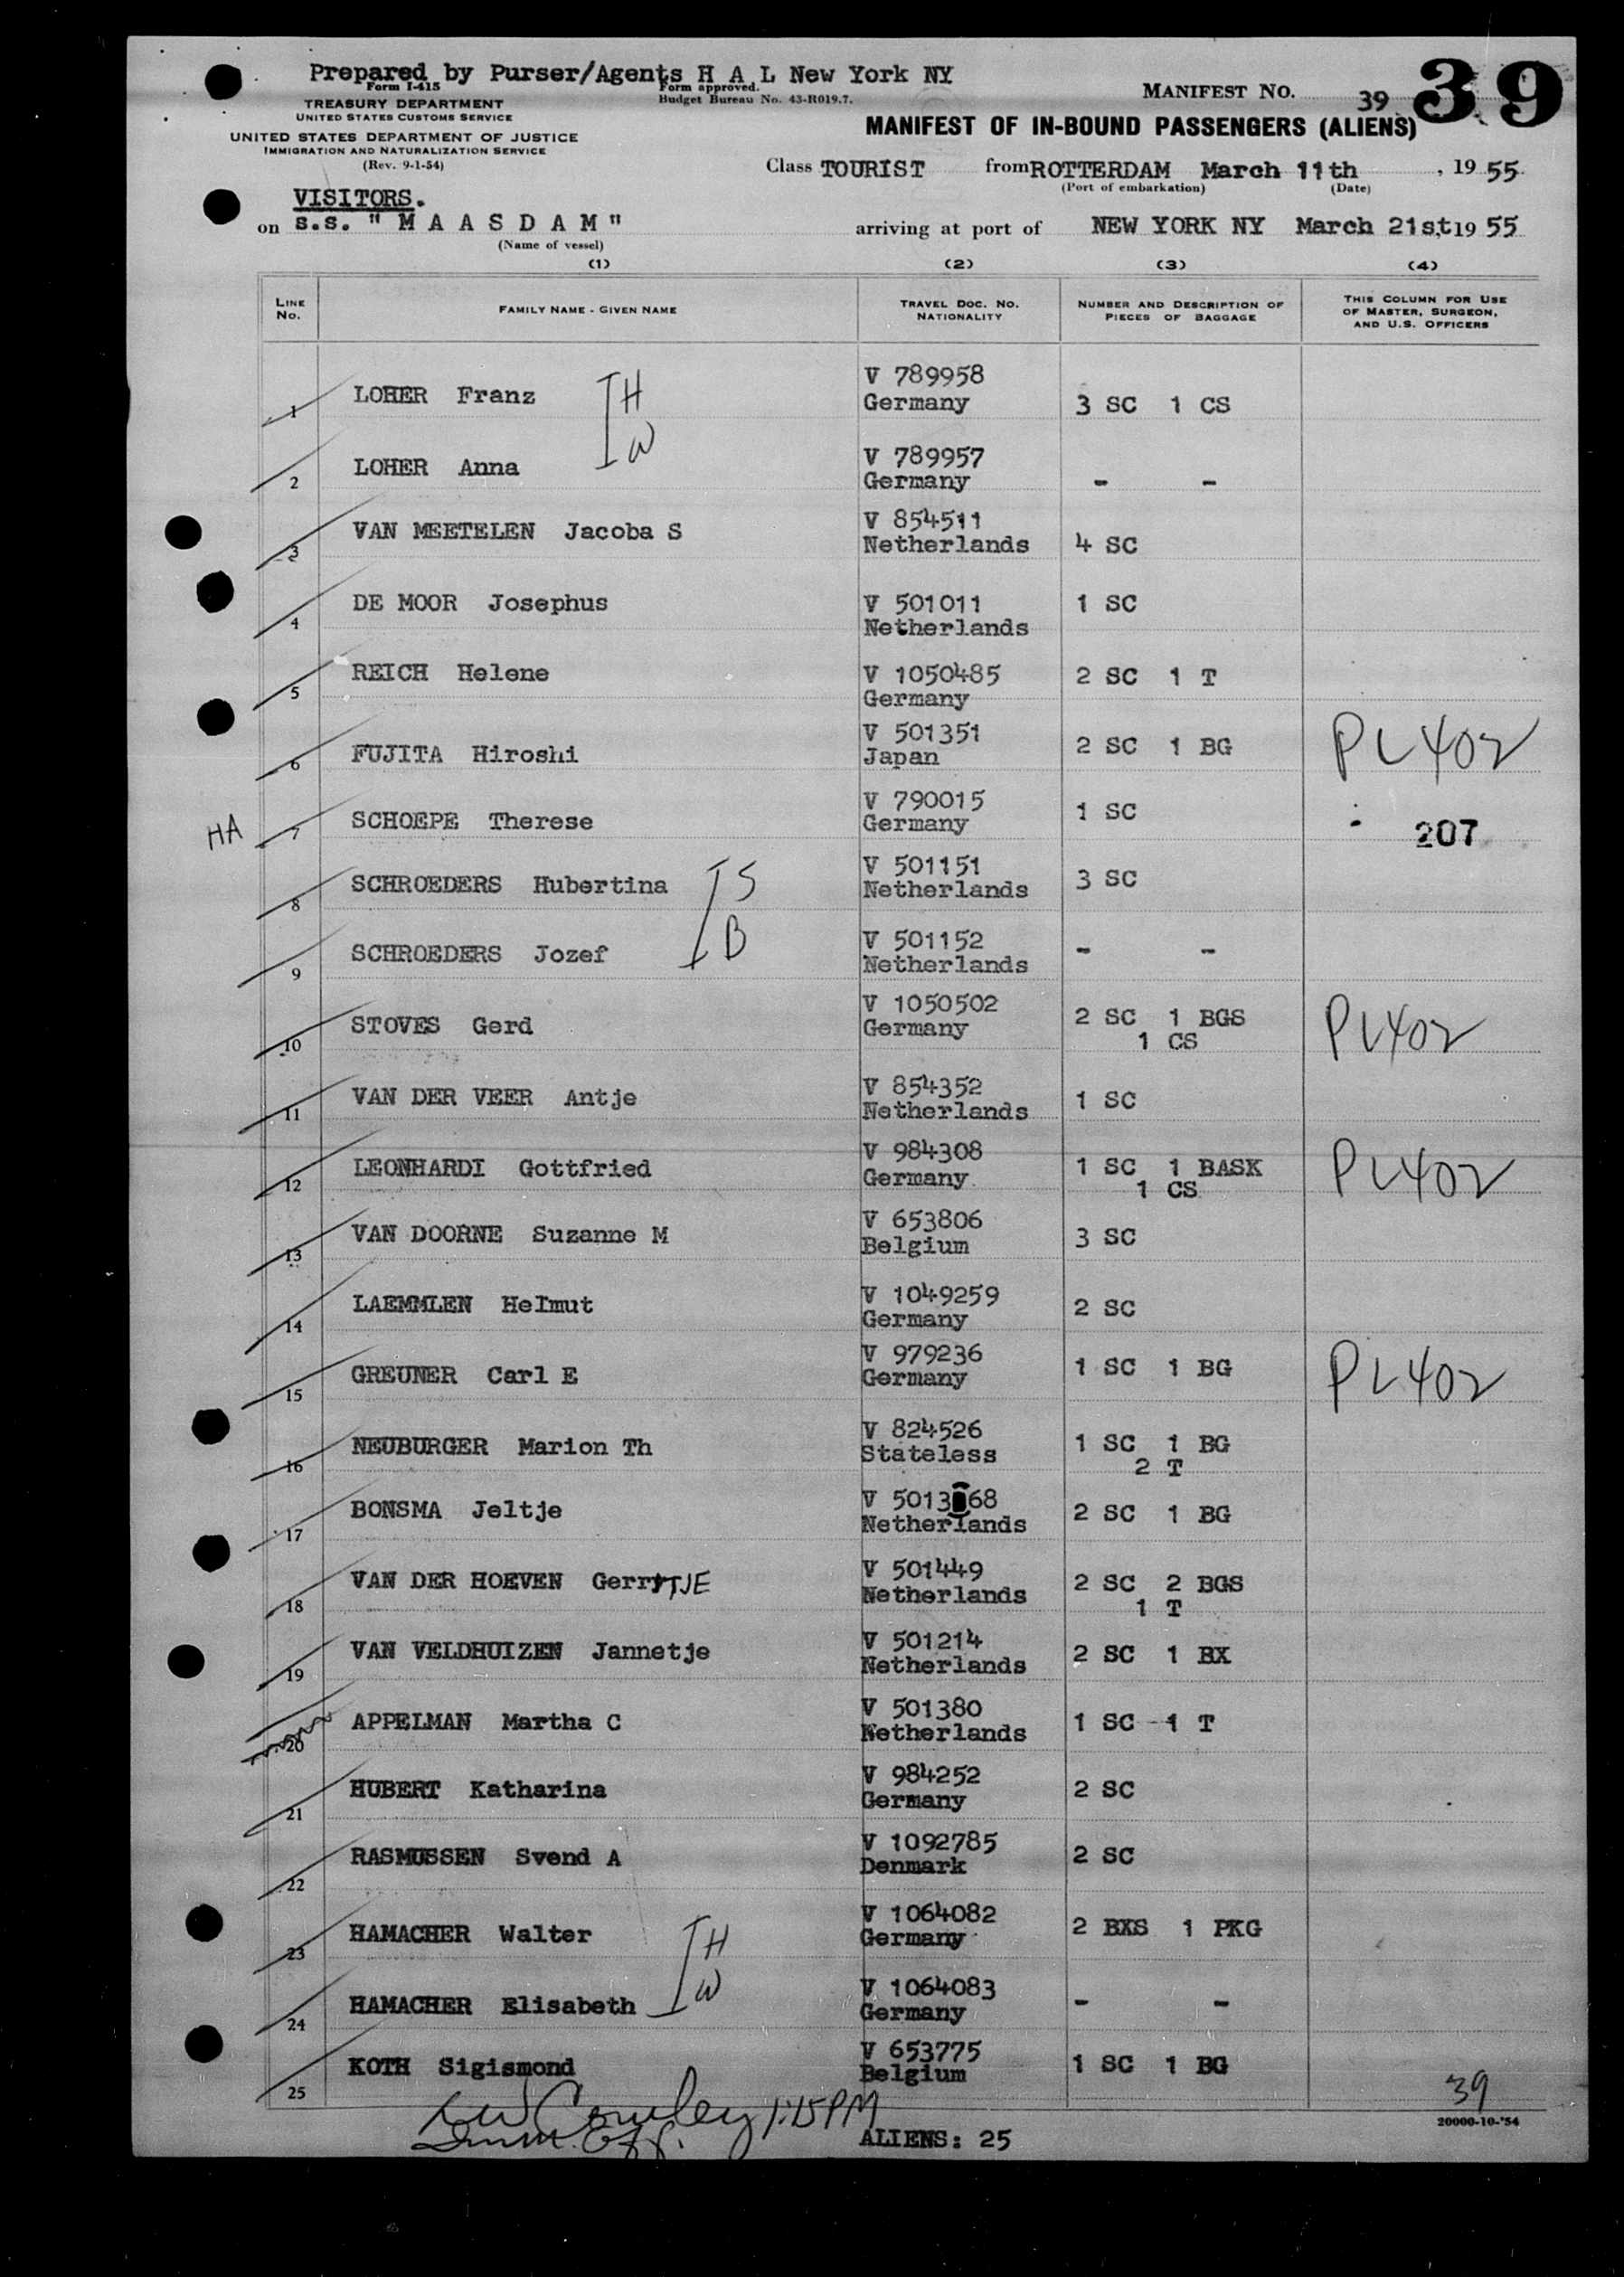 Prepared by Purser/Agents H A L New York NY
Form I-415
Form approved.
Budget Bureau No. 43-R019.7.
TREASURY DEPARTMENT
UNITED STATES CUSTOMS SERVICE
UNITED STATES DEPARTMENT OF JUSTICE
IMMIGRATION AND NATURALIZATION SERVICE
(Rev. 9-1-54)
MANIFEST NO. 39 39
MANIFEST OF IN-BOUND PASSENGERS (ALIENS)
Class TOURIST from ROTTERDAM March 11th, 1955
(Port of embarkation) (Date)
VISITORS.
on s.s. " M A A S D A M " arriving at port of NEW YORK NY March 21st, 1955
(Name of vessel)
(1) (2) (3) (4)
LINE No. FAMILY NAME - GIVEN NAME TRAVEL DOC. NO. NATIONALITY NUMBER AND DESCRIPTION OF PIECES OF BAGGAGE THIS COLUMN FOR USE OF MASTER, SURGEON, AND U.S. OFFICERS
1 LOHER Franz H V 789958 Germany 3 SC 1 CS
2 LOHER Anna W V 789957 Germany - -
3 VAN MEETELEN Jacoba S V 854511 Netherlands 4 SC
4 DE MOOR Josephus V 501011 Netherlands 1 SC
5 REICH Helene V 1050485 Germany 2 SC 1 T
6 FUJITA Hiroshi V 501351 Japan 2 SC 1 BG PL402
HA 7 SCHOEPE Therese V 790015 Germany 1 SC 207
8 SCHROEDERS Hubertina S V 501151 Netherlands 3 SC
9 SCHROEDERS Jozef B V 501152 Netherlands - -
10 STOVES Gerd V 1050502 Germany 2 SC 1 BGS 1 CS PL402
11 VAN DER VEER Antje V 854352 Netherlands 1 SC
12 LEONHARDI Gottfried V 984308 Germany 1 SC 1 BASK 1 CS PL402
13 VAN DOORNE Suzanne M V 653806 Belgium 3 SC
14 LAEMMLEN Helmut V 1049259 Germany 2 SC
15 GREUNER Carl E V 979236 Germany 1 SC 1 BG PL402
16 NEUBURGER Marion Th V 824526 Stateless 1 SC 1 BG 2 T
17 BONSMA Jeltje V 501368 Netherlands 2 SC 1 BG
18 VAN DER HOEVEN GerrITJE V 501449 Netherlands 2 SC 2 BGS 1 T
19 VAN VELDHUIZEN Jannetje V 501214 Netherlands 2 SC 1 BX
20 APPELMAN Martha C V 501380 Netherlands 1 SC 1 T
21 HUBERT Katharina V 984252 Germany 2 SC
22 RASMUSSEN Svend A V 1092785 Denmark 2 SC
23 HAMACHER Walter H V 1064082 Germany 2 BXS 1 PKG
24 HAMACHER Elisabeth W V 1064083 Germany - -
25 KOTH Sigismond V 653775 Belgium 1 SC 1 BG
39
Cowley 1:15 PM
Imm. Off.
ALIENS: 25
20000-10-'54